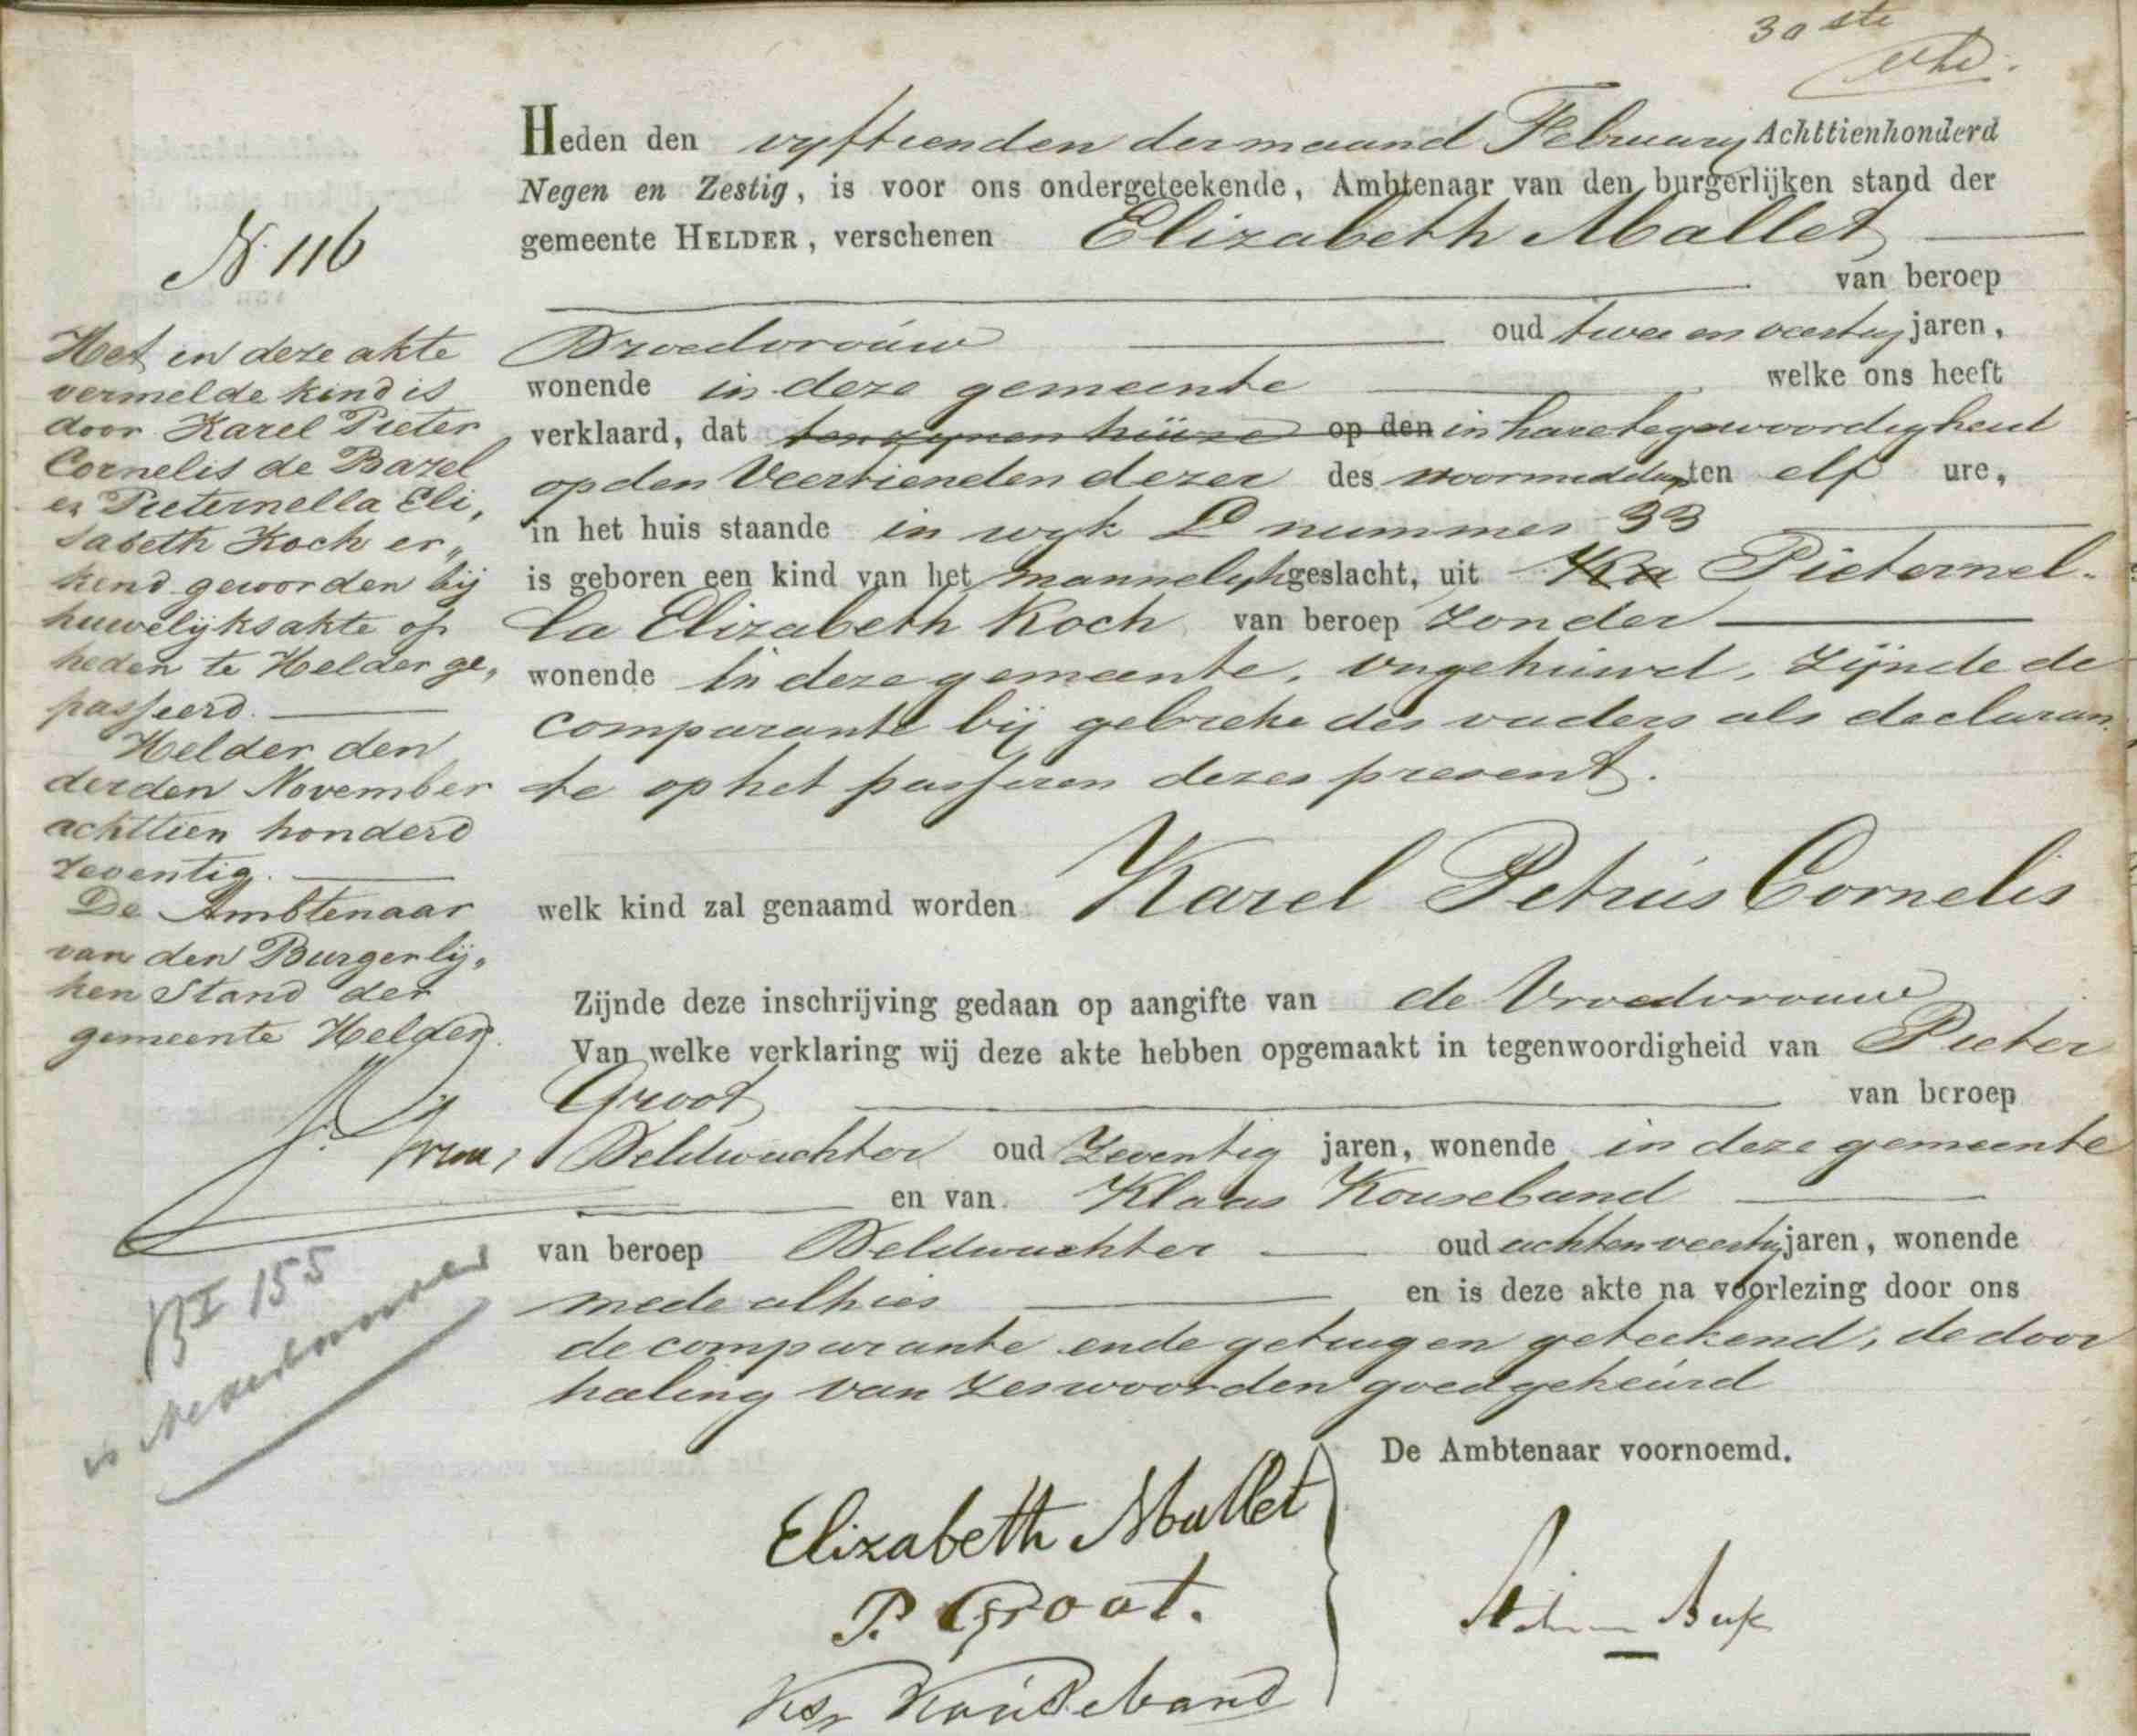 30ste
Heden den vyftienden der maand February Achttienhonderd
Negen en Zestig, is voor ons ondergeteekende, Ambtenaar van den burgerlijken stand der
gemeente HELDER, verschenen Elizabeth Mallet
van beroep
Vroedvrouw oud twee en veertig jaren,
wonende in deze gemeente welke ons heeft
verklaard, dat ten zynen huize op den in hare tegenwoordigheid
op den Veertienden dezer des voormiddags ten elf ure,
in het huis staande in wyk D nummer 33
is geboren een kind van het mannelyk geslacht, uit Ka Pieternel-
la Elizabeth Koch van beroep zonder
wonende in deze gemeente, ongehuwd, zijnde de
comparante bij gebreke des vaders als declaran
te op het passeren dezes present.
welk kind zal genaamd worden Karel Petrus Cornelis
Zijnde deze inschrijving gedaan op aangifte van de Vroedvrouw
Van welke verklaring wij deze akte hebben opgemaakt in tegenwoordigheid van Pieter
Groot van beroep
Veldwachter oud Zeventig jaren, wonende in deze gemeente
en van Klaas Kouseband
van beroep Veldwachter oud acht en veertig jaren, wonende
mede alhier en is deze akte na voorlezing door ons
de comparante en de getuigen geteekend, de door
haling van zes woorden goedgekeurd
De Ambtenaar voornoemd.
Elizabeth Mallet
P. Groot.
Ks. Kouseband
N. 116
Het in deze akte
vermelde kind is
door Karel Pieter
Cornelis de Bazel
en Pieternella Eli„
sabeth Koch er„
kend geworden bij
huwelijksakte op
heden te Helder ge„
passeerd.
Helder den
derden November
achttien honderd
zeventig.
De Ambtenaar
van den Burgerlij„
ken Stand der
gemeente Helder.
B I 155